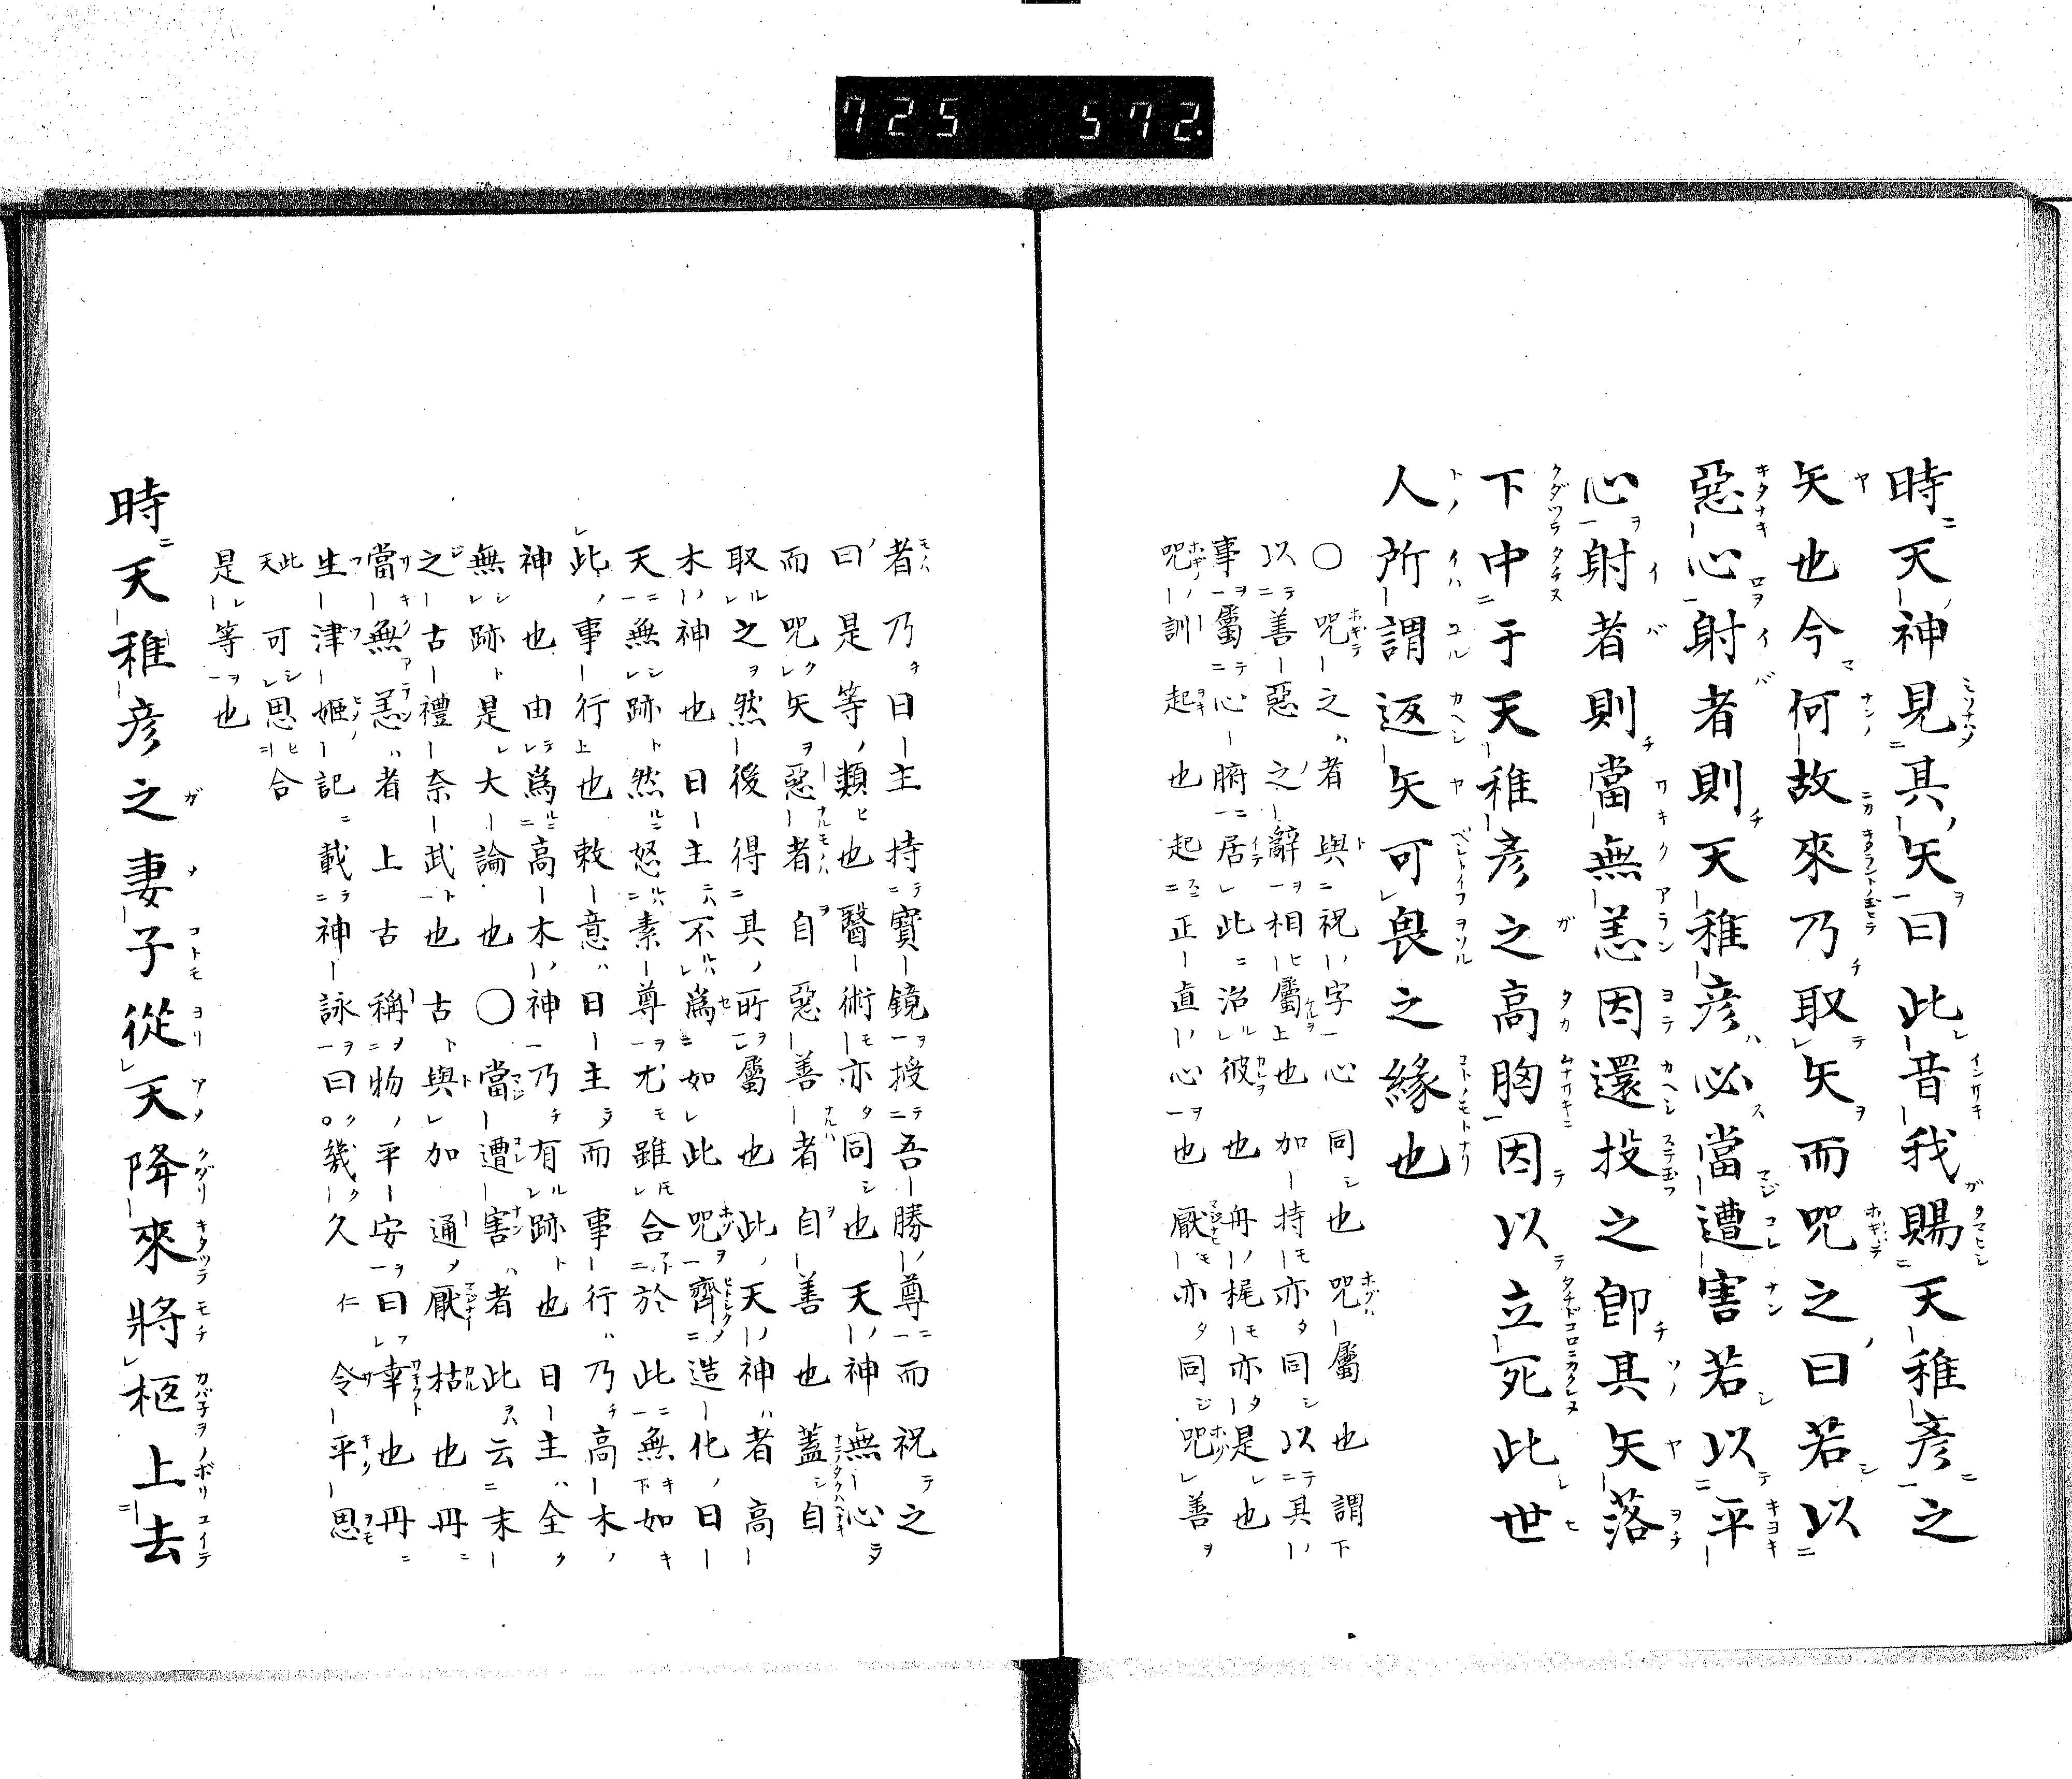 725 572.
時天神見其矢曰此昔我賜天稚彦之
矢也今何故來乃取矢而咒之曰若以
惡心射者則天稚彦必當遭害若以平
心射者則當無恙因還投之即其矢落
下中于天稚彦之高胸因以立死此世
人所謂返矢可畏之緣也
○咒之者與祝字心同也咒屬也謂
以善惡之辭相屬也加持亦同以其
事屬心腑居此治彼也舟梶亦是也
咒訓起也起正直心也厭亦同咒善
者乃日主持寶鏡授吾勝尊而祝之
曰是等類也醫術亦同也天神無心
而咒矢惡者自惡善者自善也蓋自
取之然後得其所屬也此天神者高
木神也日主不爲如此咒齊造化日
天無跡然怒素尊尤雖合於此無如
此事行也敕意日主而事行乃高木
神也由爲高木神乃有跡也日主全
無跡是大論也○當遭害者此云末
之古禮奈武也古與加通厭枯也冊
當無恙者上古稱物平安曰幸也冊
生津姬記載神詠曰幾久仁令平思
此天可思合
是等也
時天稚彦之妻子從天降來將柩上去